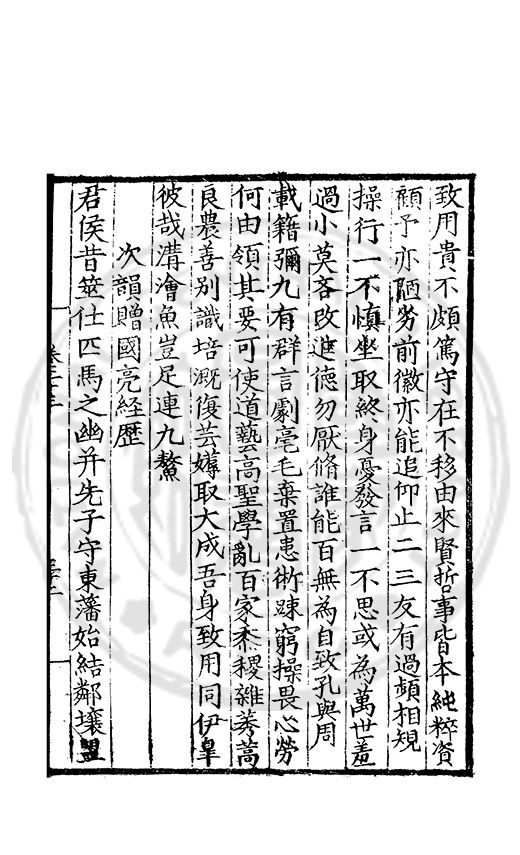 致用貴不頗篤守在不移由來賢哲事皆本純粹資
顧予亦陋劣前徽亦能追仰止二三友有過頻相規
操行一不慎坐取終身憂發言一不思或為萬世羞
過小莫吝改進德勿厭脩誰能百無為自致孔與周
載籍彌九有群言劇毫毛棄置患術踈窮操畏心勞
何由領其要可使道藝高聖學亂百家黍稷雜莠蒿
良農善别識培溉復芸薅取大成吾身致用同伊皐
彼哉溝澮魚豈足連九鰲
次韻贈國亮經歷
君侯昔筮仕匹馬之幽并先子守東藩始結鄰壤盟